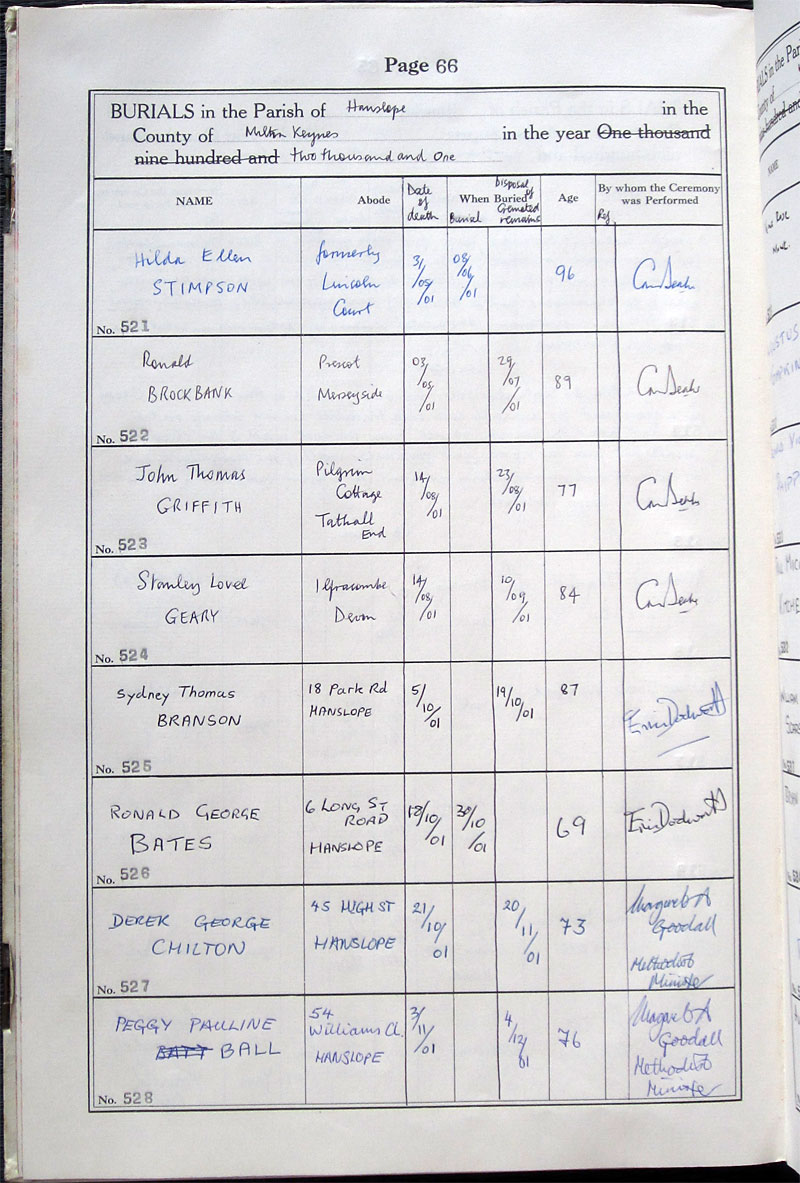 Page 66
BURIALS in the Parish of Hanslope in the
County of Milton Keynes in the year One thousand
nine hundred and two thousand and One
NAME Abode Date of death When Buried Burial Disposal of Cremated remains Age Ref By whom the Ceremony was Performed
Hilda Ellen formerly
STIMPSON Lincoln 08/06/01 96
Court
No. 521
Ronald Prescot
BROCKBANK Merseyside 03/05/01 29/07/01 89
No. 522
John Thomas Pilgrim
GRIFFITH Cottage 14/08/01 23/08/01 77
Tathall
End
No. 523
Stanley Lovel Ilfracombe
GEARY Devon 14/08/01 10/09/01 84
No. 524
Sydney Thomas 18 Park Rd
BRANSON HANSLOPE 5/10/01 19/10/01 87 Eric Dodworth
No. 525
RONALD GEORGE 6 LONG ST
ROAD
BATES HANSLOPE 18/10/01 30/10/01 69 Eric Dodworth
No. 526
DEREK GEORGE 45 HIGH ST
CHILTON HANSLOPE 21/10/01 20/11/01 73 Margaret A
Goodall
Methodist
Minister
No. 527
PEGGY PAULINE 54
Williams Cl.
BALL HANSLOPE 3/11/01 4/12/01 76 Margaret A
Goodall
Methodist
Minister
No. 528